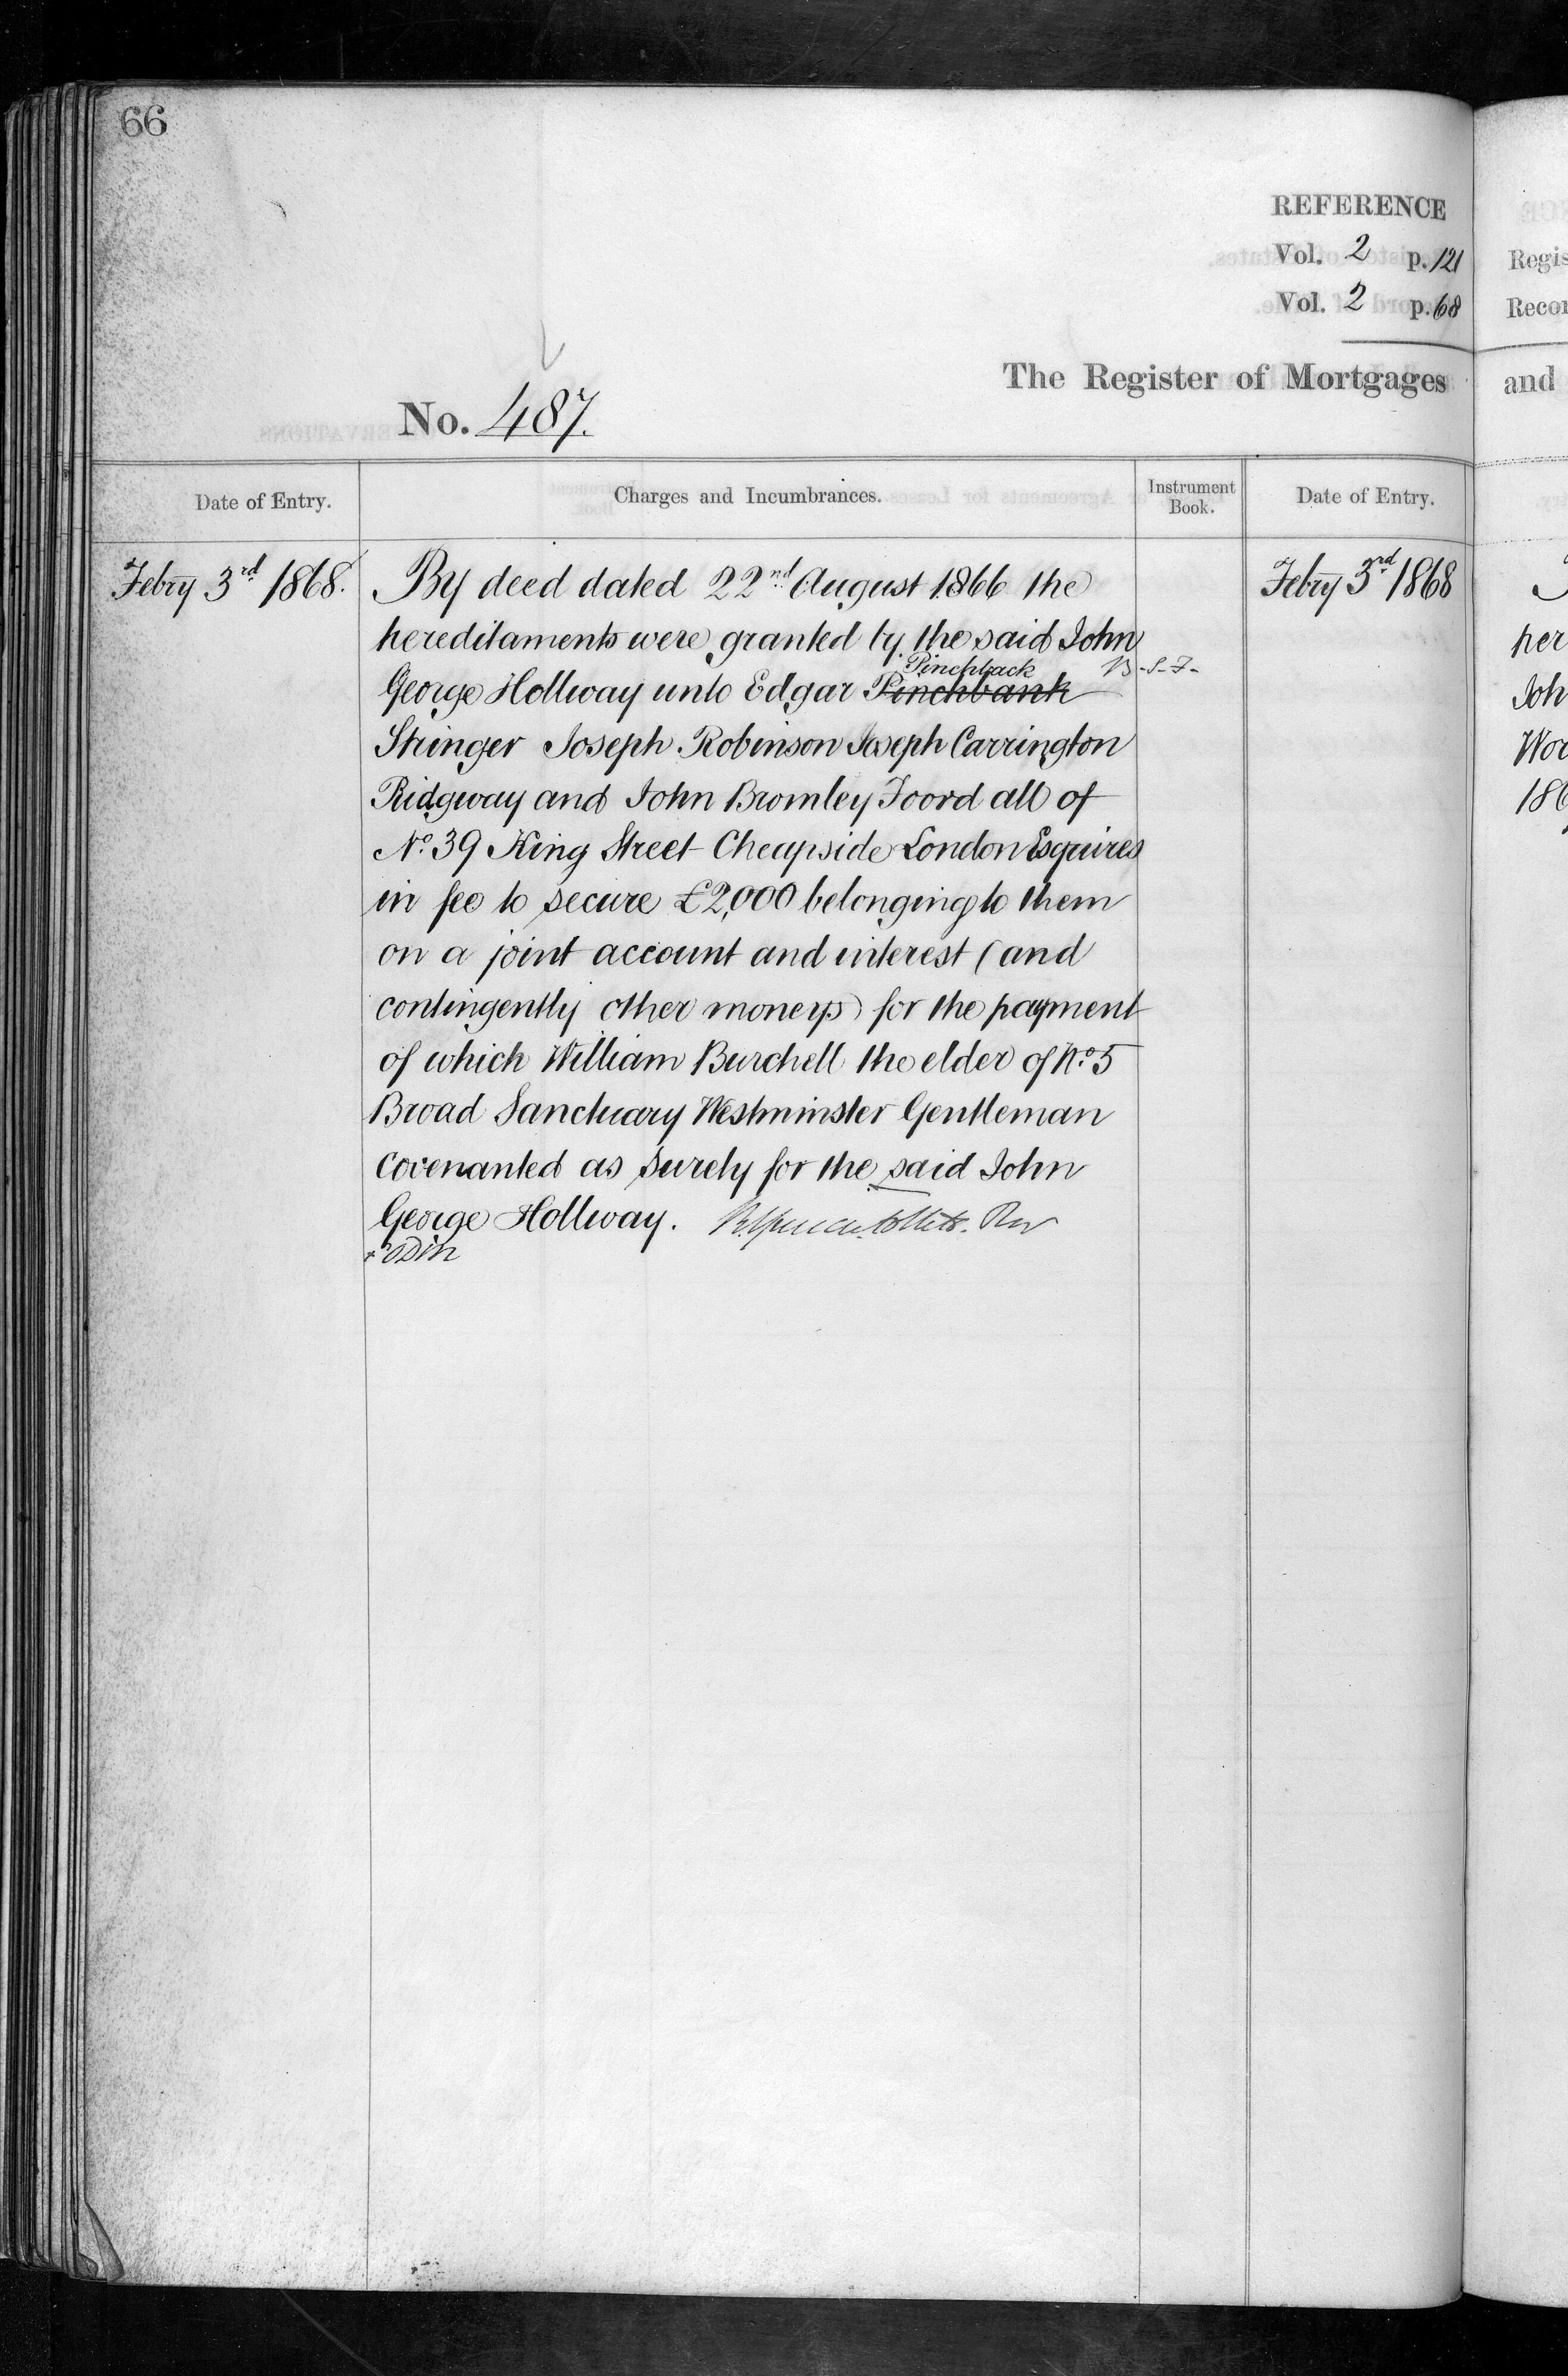 66
REFERENCE
Vol. 2 p. 121
Vol. 2 p. 68
The Register of Mortgages
No. 487.
Date of Entry.
Charges and Incumbrances.
Instrument
Book.
Date of Entry.
Febry 3rd 1868.
By deed dated 22nd August 1866 the
hereditaments were granted by the said John
Pinchback B-S-F-
George Hollway unto Edgar Pinchbank
Stringer Joseph Robinson Joseph Carrington
Ridgway and John Bromley Foord all of
No. 39 King Street Cheapside London Esquires
in fee to secure £2,000 belonging to them
on a joint account and interest (and
contingently other moneys) for the payment
of which William Burchell the elder of No. 5
Broad Sanctuary Westminster Gentleman
covenanted as surety for the said John
George Hollway.
Febry 3rd 1868
Regis
Recor
and
her
Joh
Wor
186